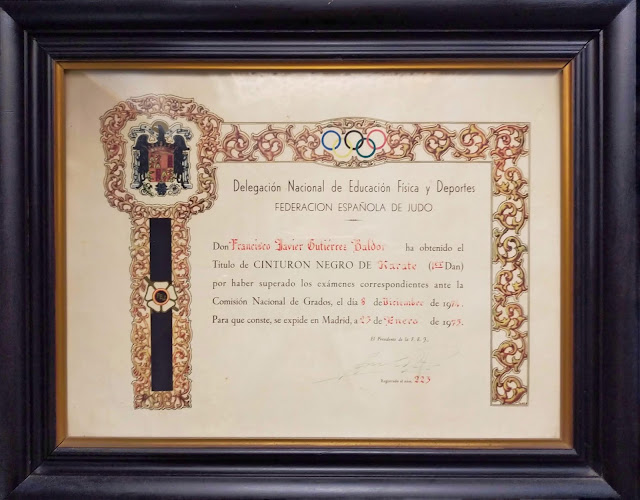 Delegación Nacional de Educación Física y Deportes
FEDERACION ESPAÑOLA DE JUDO
Don Francisco Javier Gutiérrez Baldor ha obtenido el
Título de CINTURON NEGRO DE Karate (1er Dan)
por haber superado los exámenes correspondientes ante la
Comisión Nacional de Grados, el día 8 de Diciembre de
Para que conste, se expide en Madrid, a 23 de Enero de 1975.
El Presidente de la F. E. J.
Registrado al núm. 223